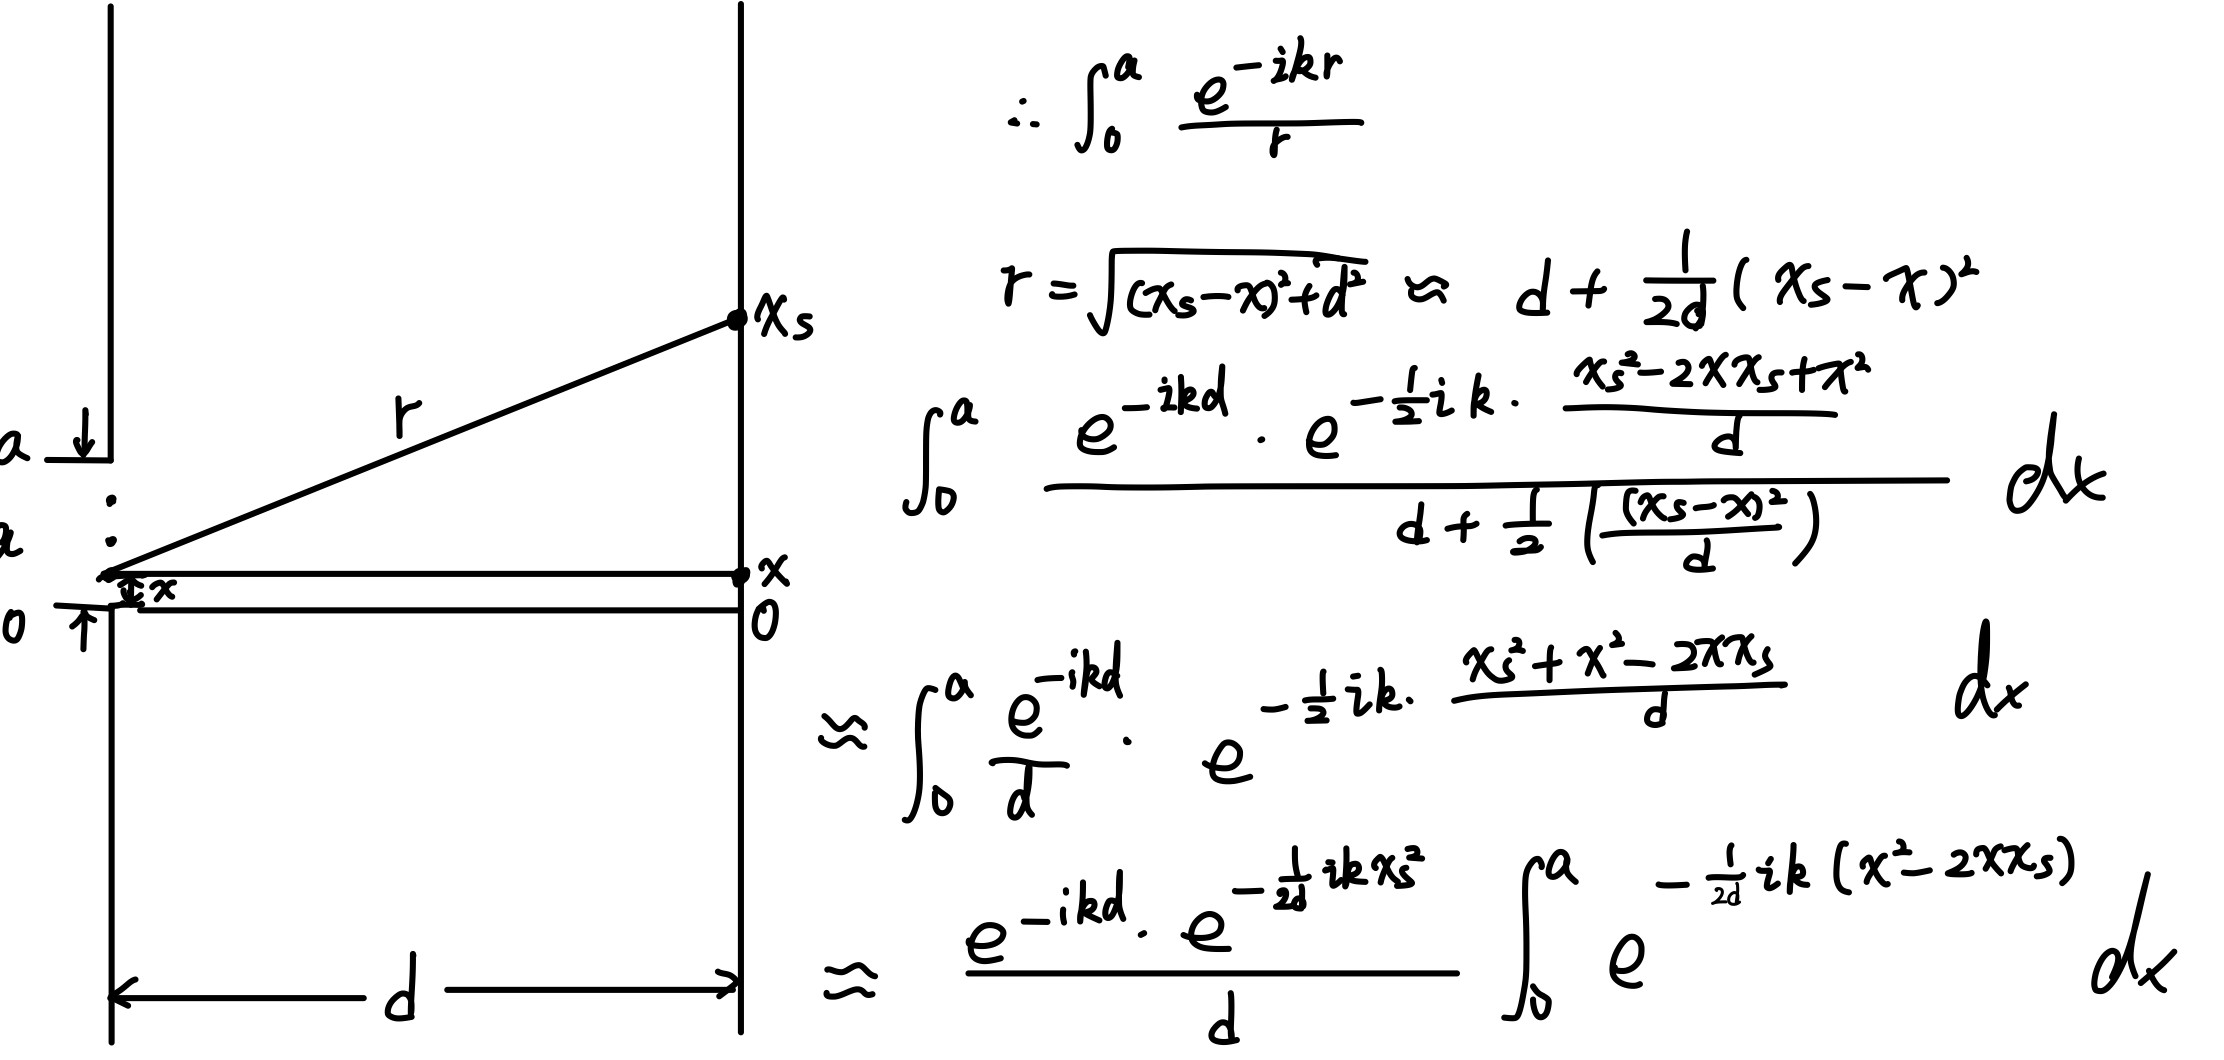 a
a
0
r
x
x_s
x
0
d
∴ ∫_0^a e^{-ikr}/r
r = √((x_s - x)² + d²) ≈ d + 1/(2d) (x_s - x)²
∫_0^a (e^{-ikd} · e^{-1/2 ik · (x_s² - 2xx_s + x²)/d}) / (d + 1/2 ((x_s - x)²/d)) dx
≈ ∫_0^a e^{-ikd}/d · e^{-1/2 ik · (x_s² + x² - 2xx_s)/d} dx
≈ (e^{-ikd} · e^{-1/(2d) ikx_s²})/d ∫_0^a e^{-1/(2d) ik (x² - 2xx_s)} dx